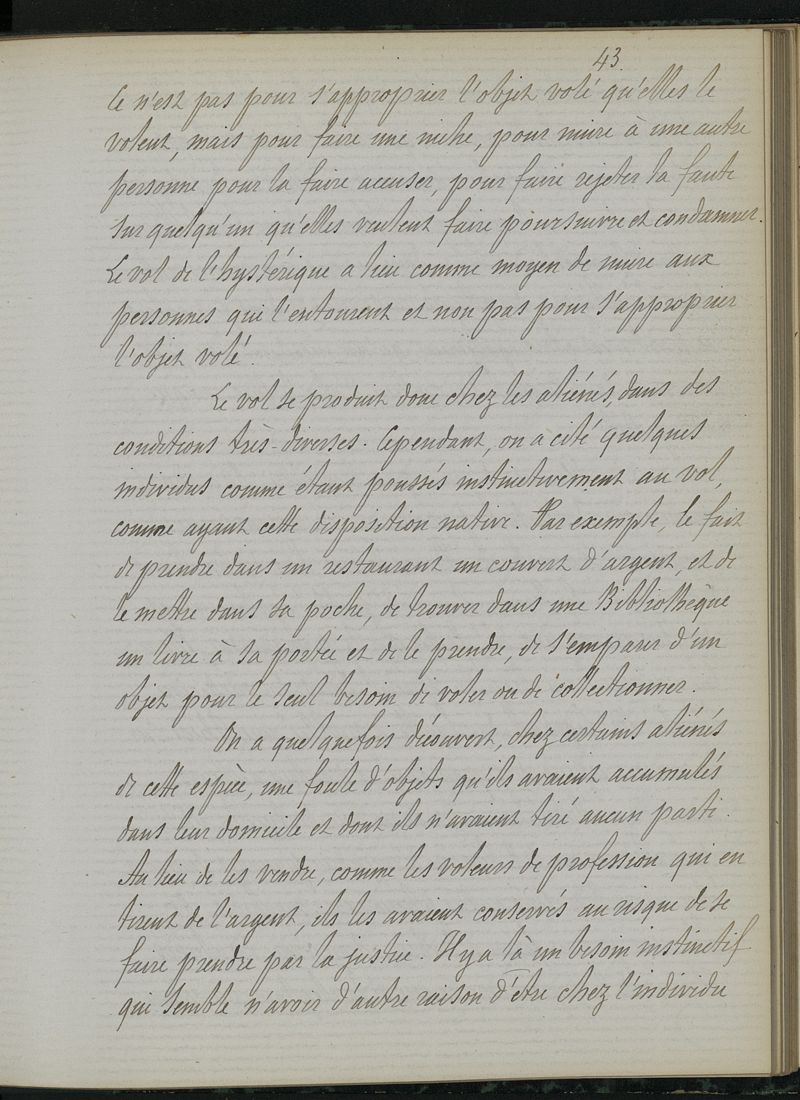 43
Ce n'est pas pour s'approprier l'objet volé qu'elles le
volent, mais pour faire une niche, pour nuire à une autre
personne pour la faire accuser, pour faire rejeter la faute
sur quelqu'un qu'elles veulent faire poursuivre et condamner.
Le vol de l'hystérique a lieu comme moyen de nuire aux
personnes qui l'entourent et non pas pour s'approprier
l'objet volé.
Le vol se produit donc chez les aliénés, dans des
conditions très-diverses. Cependant, on a cité quelques
individus comme étant poussés instinctivement au vol,
comme ayant cette disposition native. Par exemple, le fait
de prendre dans un restaurant un couvert d'argent, et de
le mettre dans sa poche, de trouver dans une Bibliothèque
un livre à sa portée et de le prendre, de s'emparer d'un
objet pour le seul besoin de voler ou de collectionner.
On a quelquefois découvert, chez certains aliénés
de cette espèce, une foule d'objets qu'ils avaient accumulés
dans leur domicile et dont ils n'avaient tiré aucun parti.
Au lieu de les vendre, comme les voleurs de profession qui en
tirent de l'argent, ils les avaient conservés au risque de se
faire prendre par la justice. Il y a là un besoin instinctif
qui semble n'avoir d'autre raison d'être chez l'individu